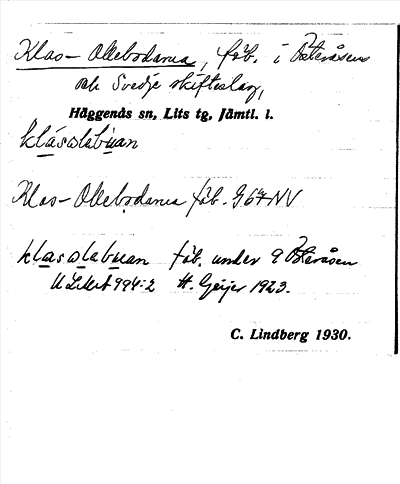 Klas-Ollebodarna, fäb. i Österåsens
och Svedje skifteslag,
Häggenås sn, Lits tg, Jämtl. l.
klásolabuan
Klas-Ollebodarna fäb. G 67 NV
klasolabuan fäb. under 9 Österåsen
ULikert 994:2 H. Geijer 1923.
C. Lindberg 1930.